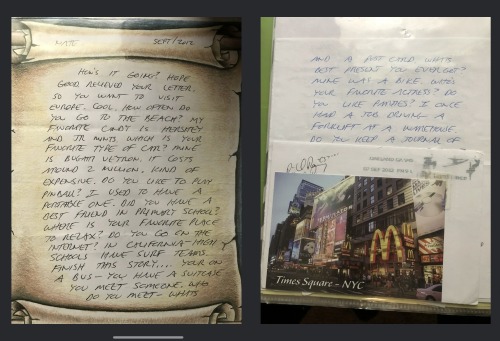 MATE SEPT/2012
HOW'S IT GOING? HOPE
GOOD. RECIEVED YOUR LETTER.
SO YOU WANT TO VISIT
EUROPE. COOL. HOW OFTEN DO
YOU GO TO THE BEACH? MY
FAVORITE CANDY IS HERSHEY
AND JR MINTS. WHICH IS YOUR
FAVORITE TYPE OF CAR? MINE
IS BUGATTI VEYRON. IT COSTS
AROUND 2 MILLION, KIND OF
EXPENSIVE. DO YOU LIKE TO PLAY
PINBALL? I USED TO HAVE A
PORTABLE ONE. DID YOU HAVE A
BEST FRIEND IN PRIMARY SCHOOL?
WHERE IS YOUR FAVORITE PLACE
TO RELAX? DO YOU GO ON THE
INTERNET? IN CALIFORNIA HIGH
SCHOOLS HAVE SURF TEAMS.
FINISH THIS STORY.... YOUR ON
A BUS - YOU HAVE A SUITCASE
YOU MEET SOMEONE. WHO
DO YOU MEET - WHATS
AND A
WHAT'S
BEST PRESENT YOU EVER GET?
MINE WAS A BIKE. WHO'S
YOUR FAVORITE DO
YOU LIKE I ONCE
HAD A JOB DRIVING A
FORKLIFT AT A WAREHOUSE.
DO YOU KEEP A JOURNAL OF
McDonald's
Times Square - NYC